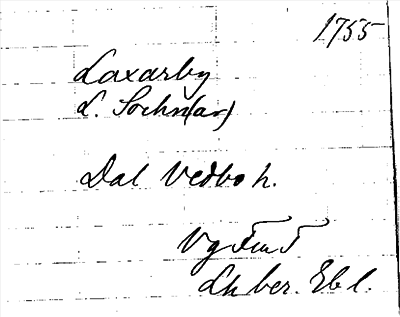 1755
Laxarby
L. Sochn(ar)
Dal Vedbo h.
Lh ber. Ebl.